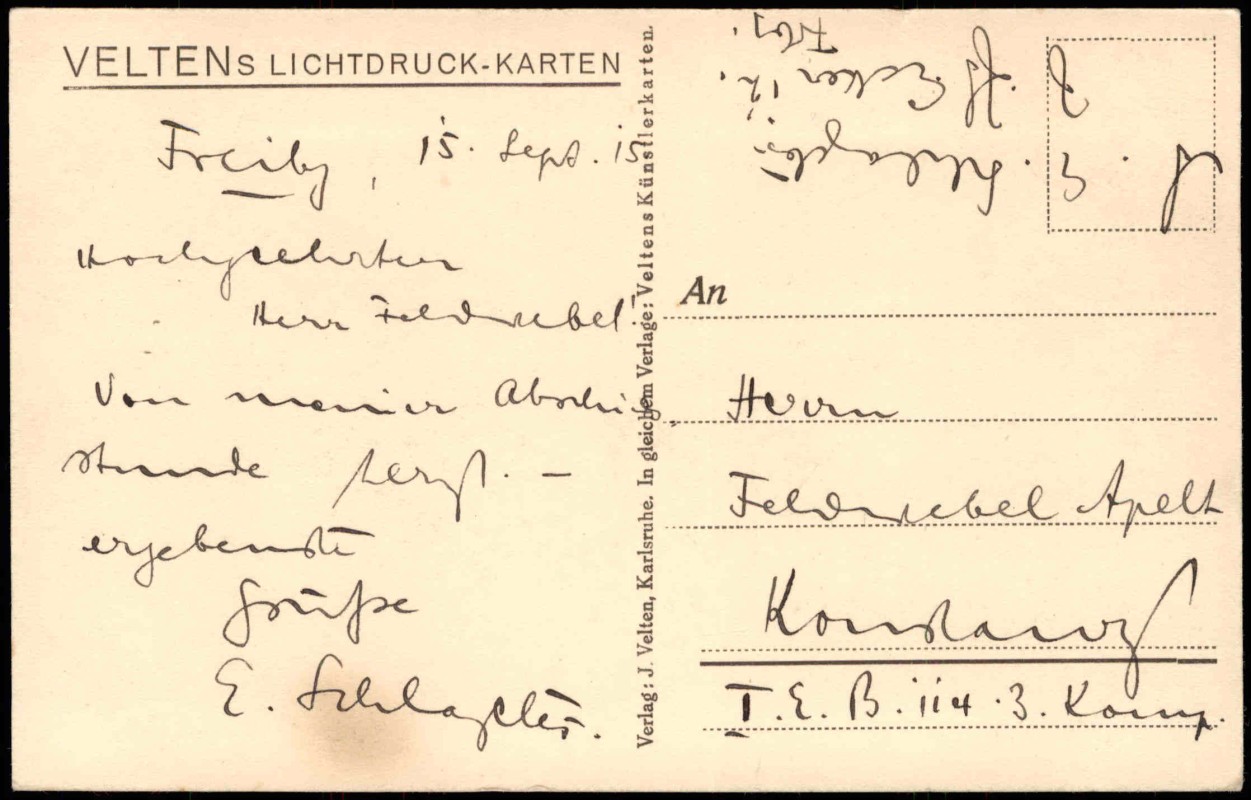 VELTENs LICHTDRUCK-KARTEN
Freibg, 15. Sept. 15
Hochgeehrter
Herr Feldwebel!
Von meiner Abschieds
stunde herzl. –
ergebenste
Grüße
E. Schlageter.
Verlag: J. Velten, Karlsruhe. In gleichem Verlage: Veltens Künstlerkarten.
E. Schlageter
Frbg.
An
Herrn
Feldwebel Apelt
Konstanz
I. E. B. 114 . 3. Komp.